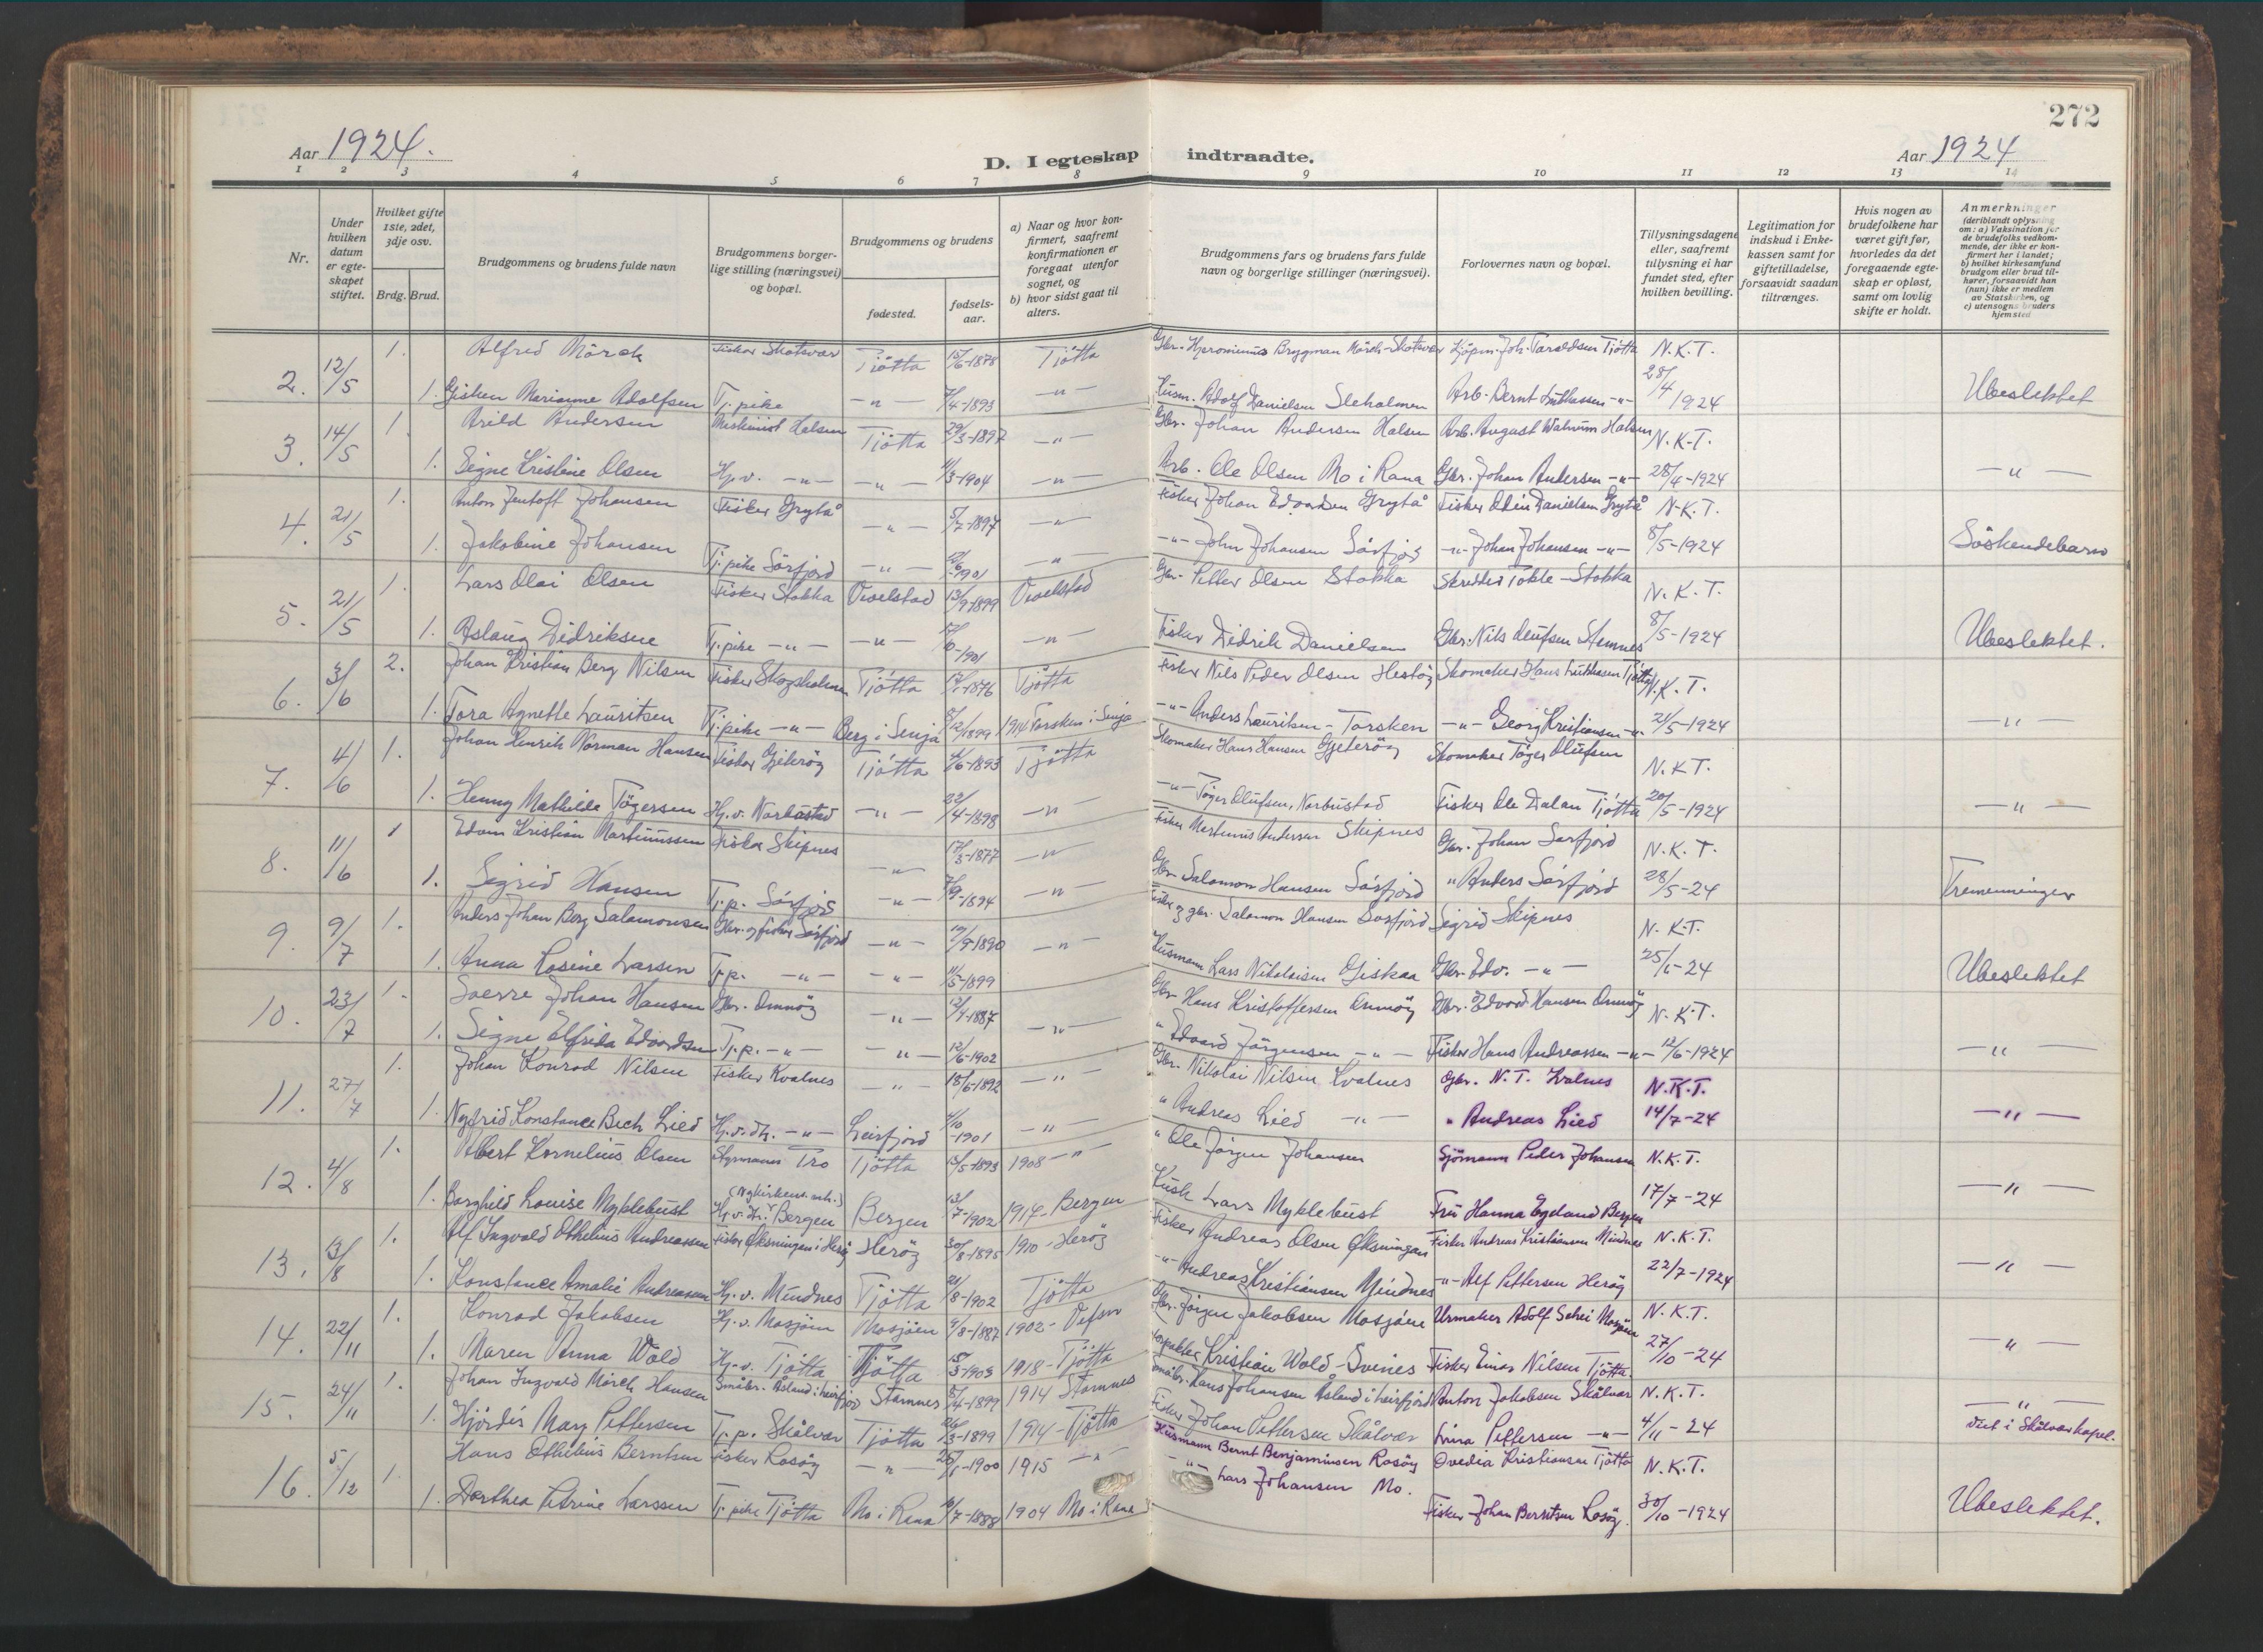 272
Aar 1924.
D. I egteskap indtraadte.
Aar 1924
1 2 3 4 5 6 7 8 9 10 11 12 13 14
Nr.
Under hvilken datum er egteskapet stiftet.
Hvilket gifte 1ste, 2det, 3dje osv.
Brdg. Brud.
Brudgommens og brudens fulde navn
Brudgommens borgerlige stilling (næringsvei) og bopæl.
Brudgommens og brudens
fødested.
fødselsaar.
a) Naar og hvor konfirmert, saafremt konfirmationen er foregaat utenfor sognet, og
b) hvor sidst gaat til alters.
Brudgommens fars og brudens fars fulde navn og borgerlige stillinger (næringsvei).
Forlovernes navn og bopæl.
Tillysningsdagene eller, saafremt tillysning ei har fundet sted, efter hvilken bevilling.
Legitimation for indskud i Enkekassen samt for giftetilladelse, forsaavidt saadan tiltrænges.
Hvis nogen av brudefolkene har været gift før, hvorledes da det foregaaende egteskap er opløst, samt om lovlig skifte er holdt.
Anmerkninger (deriblandt oplysning om: a) Vaksination for de brudefolks vedkommende, der ikke er konfirmert her i landet; b) hvilket kirkesamfund brudgom eller brud tilhører, forsaavidt han (hun) ikke er medlem av Statskirken, og c) utensogns bruders hjemsted
2. 12/5 1. Alfred Mörch Fisker Skotsvær Tjötta 15/6-1878 Tjötta Gbr. Brygman Mörch-Skotsvær Kjöpm. Joh. Taraldsen Tjötta N.K.T.
1. Gisken Marianne Adolfsen Tj. pike -"- 7/4-1893 -"- Husm. Adolf Danielsen Sleholmen Arb. Bernt -"- 28/4 1924 Ubeslektet
3. 14/5 1. Arild Andersen Halsen Tjötta 29/3-1897 -"- Gbr. Johan Andersen Halsen Arb. August Walnum Halsen N.K.T.
1. Signe Kristine Olsen Hj.v. -"- -"- 11/3-1904 -"- Arb. Ole Olsen Mo i Rana Gbr. Johan Andersen -"- 28/4-1924 -"-
4. 21/5 1. Anton Zentoft Johansen Fisker Grytå -"- 5/7-1897 -"- Fisker Johan Edvardsen Grytå Fisker Odin Danielsen Grytå N.K.T.
1. Jakobine Johansen Tj. pike Sörfjord -"- -1901 -"- -"- John Johansen Sörfjord -"- Johan Johansen -"- 8/5-1924 Söskendebarn
5. 21/5 1. Lars Olai Olsen Fisker Stokka Vevelstad 13/9-1899 Vevelstad Gbr. Petter Olsen Stokka Skredder Tokle-Stokka N.K.T.
1. Aslaug Didriksen Tj. pike -"- -"- -1901 -"- Fisker Didrik Danielsen Gbr. Nils Olufsen Stemnes 8/5-1924 Ubeslektet.
6. 3/6 2. Johan Kristian Berg Nilsen Fisker Skogsholmen Tjötta -1876 Tjötta Fisker Nils Peder Olsen Hestöy Skomaker Hans Lukkassen Tjötta N.K.T.
1. Tora Agnette Lauritsen Tj. pike -"- Berg i Senja /12/1899 1914 Torsken i Senja -"- Anders Lauritsen - Torsken -"- Georg Kristiansen -"- 21/5-1924 -"-
7. 4/6 1. Johan Henrik Norman Hansen Fisker Gjeteröy Tjötta /6-1893 Tjötta Skomaker Hans Hansen Gjeteröy Skomaker Töger Olufsen N.K.T.
1. Henny Mathilde Tögersen Hj.v. Norbustad -"- 22/4-1898 -"- -"- Töger Olufsen, Norbustad Fisker Ole Dalan Tjötta 20/5-1924 -"-
8. 11/6 1 Edvin Kristian Martinussen Fisker Skipnes -"- 17/3-1877 -"- Fisker Martinus Andersen Skipnes Gbr. Johan Sörfjord N.K.T.
1. Sigrid Hansen Tj.p. Sörfjord -"- 7/9-1894 -"- Gbr Salomon Hansen Sörfjord " Anders Sörfjord 28/5-24 Tremenninger
9. 9/7 1. Anders Johan Berg Salomonsen Gbr. og fisker Sörfjord -"- /9-1890 -"- Fisker og gbr. Salomon Hansen Sörfjord Sigrid Skipnes N.K.T.
1. Anna Rosine Larsen Tj.p. -"- -"- 11/5-1899 Husmann Lars Nikolaisen Giskaa Gbr. Edv. -"- 25/6-24 Ubeslektet
10. 23/7 1. Sverre Johan Hansen Gbr. Omnöy -"- /4-1887 -"- Gbr Hans Kristoffersen Omnöy Gbr. Edvard Hansen Omnöy N.K.T.
1. Signe Elfrida Edvardsen Tj.p. -"- -"- 12/6-1902 " Edvard Jörgensen -"- Fisker Hans Andreassen -"- 12/6-1924 -"-
11. 27/7 1. Johan Konrad Nilsen Fisker Kvalnes -"- 18/6-1892 -"- Gbr. Nikolai Nilsen Kvalnes Gbr. N. T. Kvalnes N.K.T.
1. Nyfrid Konstance Bech Lied Hj.v.dt. -"- Leirfjord /10-1901 -"- " Andreas Lied -"- " Andreas Lied 14/7-24 -"-
12. 4/8 1. Albert Kornelius Olsen Styrmann Tro Tjötta 13/5-1893 1908 -"- " Ole Jörgen Johansen Sjömann Peder Johansen N.K.T.
1. Borghild Louise Myklebust (Nykirkens mh.) Hj.v.dt. Bergen Bergen 13/7-1902 1917- Bergen Kusk Lars Myklebust Fru Hanna Egeland Bergen 17/7-24 -"-
13. 13/8 1. Alf Ingvald Othelius Andreassen Fisker Öksningan i Heröy Heröy 30/8-1895 1910 - Heröy Fisker Andreas Olsen Öksningan Fisker Andreas Kristiansen Mindnes N.K.T.
1. Konstance Amalie Andreassen Hj.v. Mindnes Tjötta 21/8-1902 Tjötta -"- Andreas Kristiansen Mindnes -"- Alf Pettersen Heröy 22/7-1924 -"-
14. 22/11 1. Konrad Jakobsen Hj.v. Mosjöen Mosjöen 9/8-1887 1902 - Vefsn Gbr. Jörgen Jakobsen Mosjöen Urmaker Adolf Sehei Mosjöen N.K.T.
1. Maren Anna Wold Hj.v. Tjötta Tjötta 15/3-1903 1918 - Tjötta Kristian Wold - Svines Fisker Einar Nilsen Tjötta. 27/10-24 -"-
15. 24/11 1. Johan Ingvald Mörch Hansen Småbr. Åsland i Leirfjord Stamnes 8/4-1899 1914 Stamnes Småbr. Hans Johansen Åsland i Leirfjord Anton Jakobsen Skålvær N.K.T.
1. Hjördis Mary Pettersen Tj.p. Skålvær Tjötta 26/3-1899 1914 - Tjötta Fisker Johan Pettersen Skålvær Lina Pettersen -"- 4/11-24 -"- Viet i Skålvær kapel.
16. 5/12 1. Hans Othelius Berntsen Fisker Rosöy -"- 25/1-1900 1915 -"- Husmann Bernt Benjaminsen Rosöy Ovedia Kristiansen Tjötta N.K.T.
1. Dorthea Petrine Larssen Tj. pike Tjötta Mo i Rana /7-1888 1904 Mo i Rana -"- Lars Johansen Mo. Fisker Johan Berntsen Rosöy. 30/10-1924 Ubeslektet.